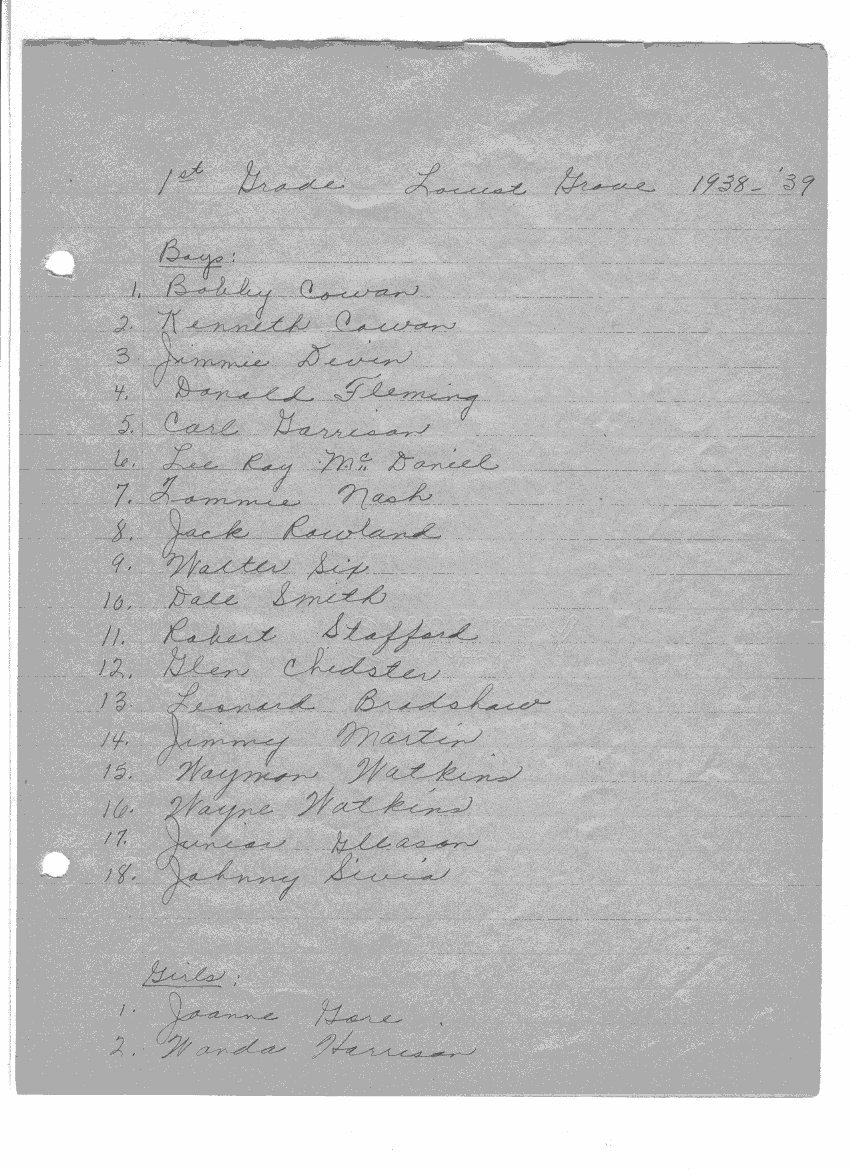 1st Grade Locust Grove 1938-'39
Boys:
1. Bobby Cowan
2. Kenneth Cowan
3 Jimmie Devin
4. Donald Fleming
5. Carl Garrison
6. Lee Ray Mc Daniel
7. Tommie Nash
8. Jack Rowland
9. Walter Six
10. Dale Smith
11. Robert Stafford
12. Glen Chedster
13. Leonard Bradshaw
14. Jimmy Martin
15. Waymon Watkins
16. Wayne Watkins
17. Junior Gleason
18. Johnny Sivia
Girls:
1. Joanne Gore
2. Wanda Harrison